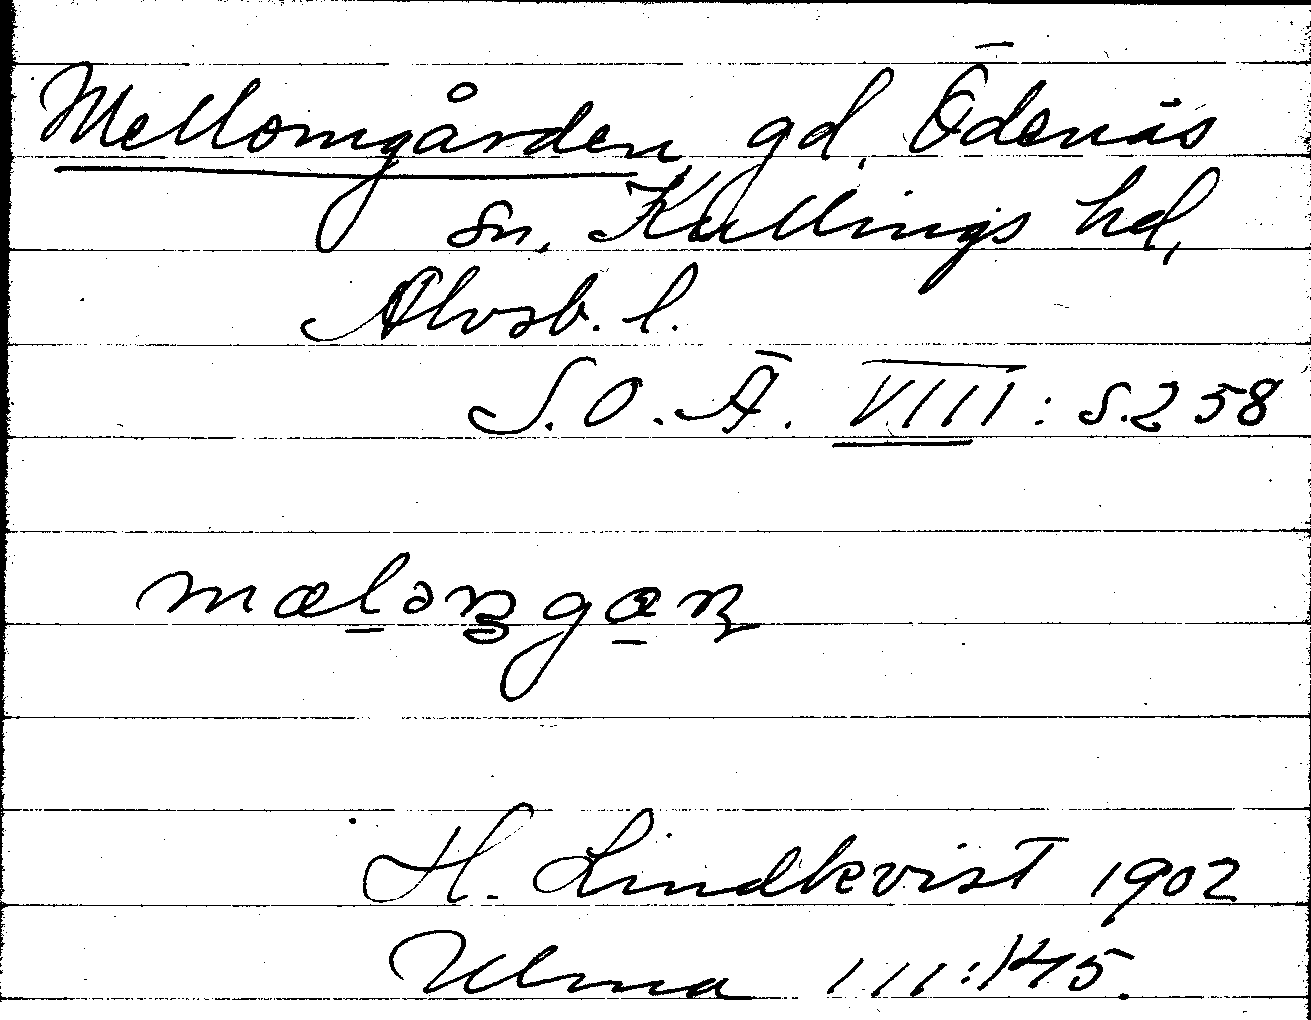 Mellomgården gd, Ödenäs
sn, Kullings hd,
Älvsb. l.
S.O.Ä. VIII: s. 258
H. Lindkvist 1902
Ulma 111:145.